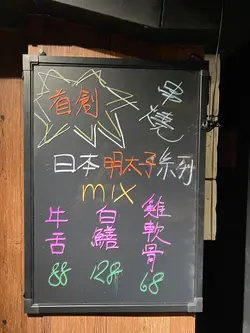 首創
串燒
日本明太子系列
mix
牛舌 88
白鱔 128
雞軟骨 68